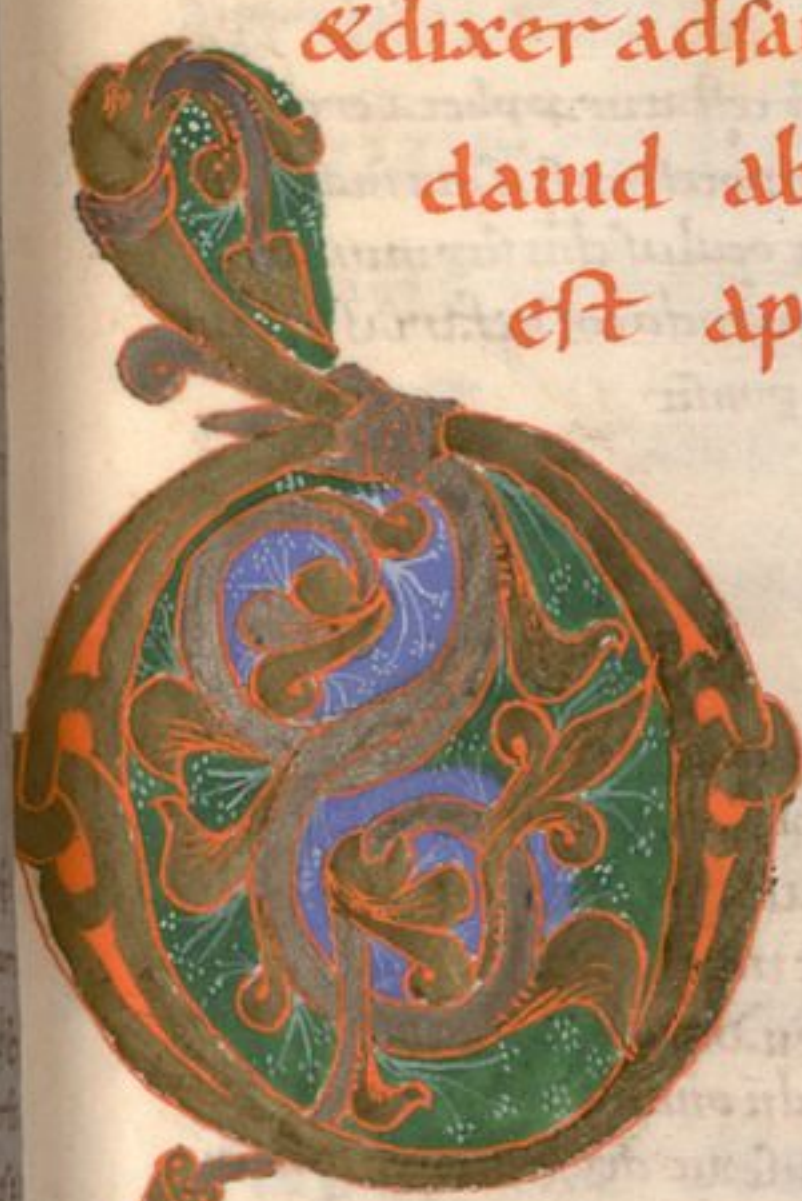 &dixer adſa
dauid ab
eſt ap